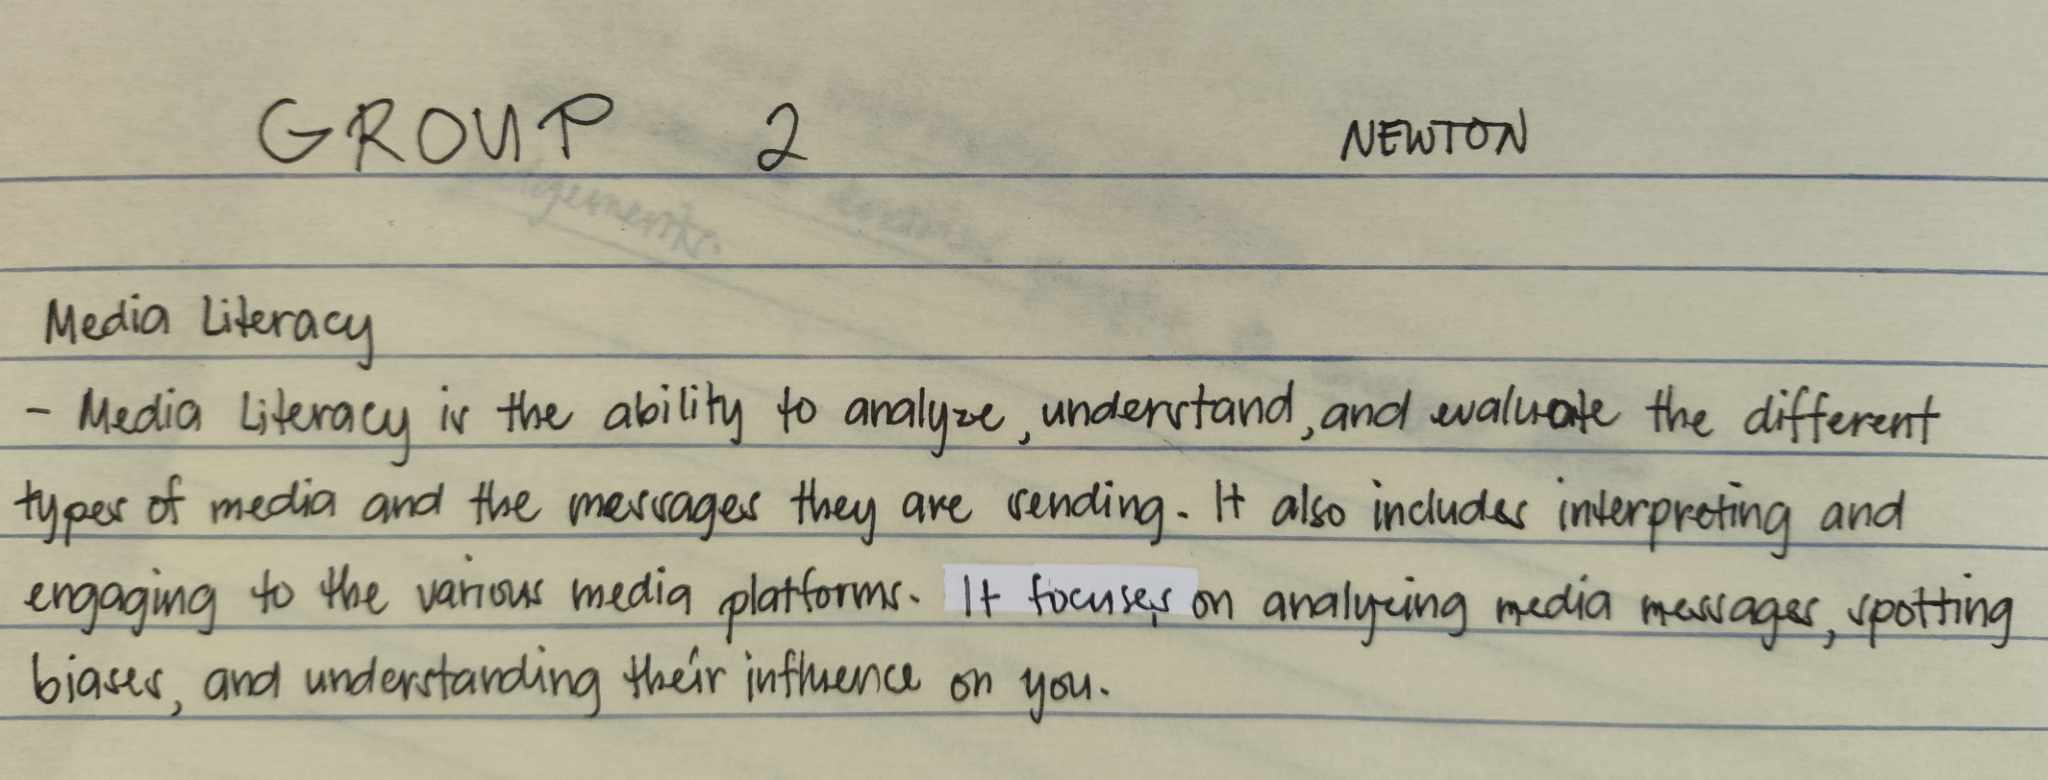 GROUP 2 NEWTON
Media Literacy
- Media Literacy is the ability to analyze, understand, and evaluate the different
types of media and the messages they are sending. It also includes interpreting and
engaging to the various media platforms. It focuses on analyzing media messages, spotting
biases, and understanding their influence on you.